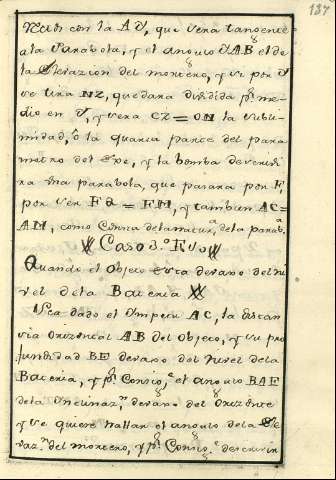 187
con la A J, que vera tangente
a la Parabola, y el angulo JAB el de
la Elevazion del mortero, y si por J
se tira NZ, quedara dividida pr. me-
dio en J, y vera CZ = ON la subli-
midad, ô la quarta parte del para-
metro del Exe, y la bomba
una parabola, que pasara por F,
por ser F = FM, y tambien AC =
AM, como consta dela natura, dela parab.a
Caso 3.o
Quando el objeto esta devaxo del ni
vel dela Bateria
Sea dado el Impetu AC, la distan
cia orizontal AB del objeto, y su pro
fundidad BE devaxo del nivel dela
Bateria, y pr. Consig.e el angulo BAE
dela Inclinaz.n devaxo del Orizonte
y se quiere hallar el angulo dela Ele
vaz.n del mortero, y pr. Consig.e descrivir